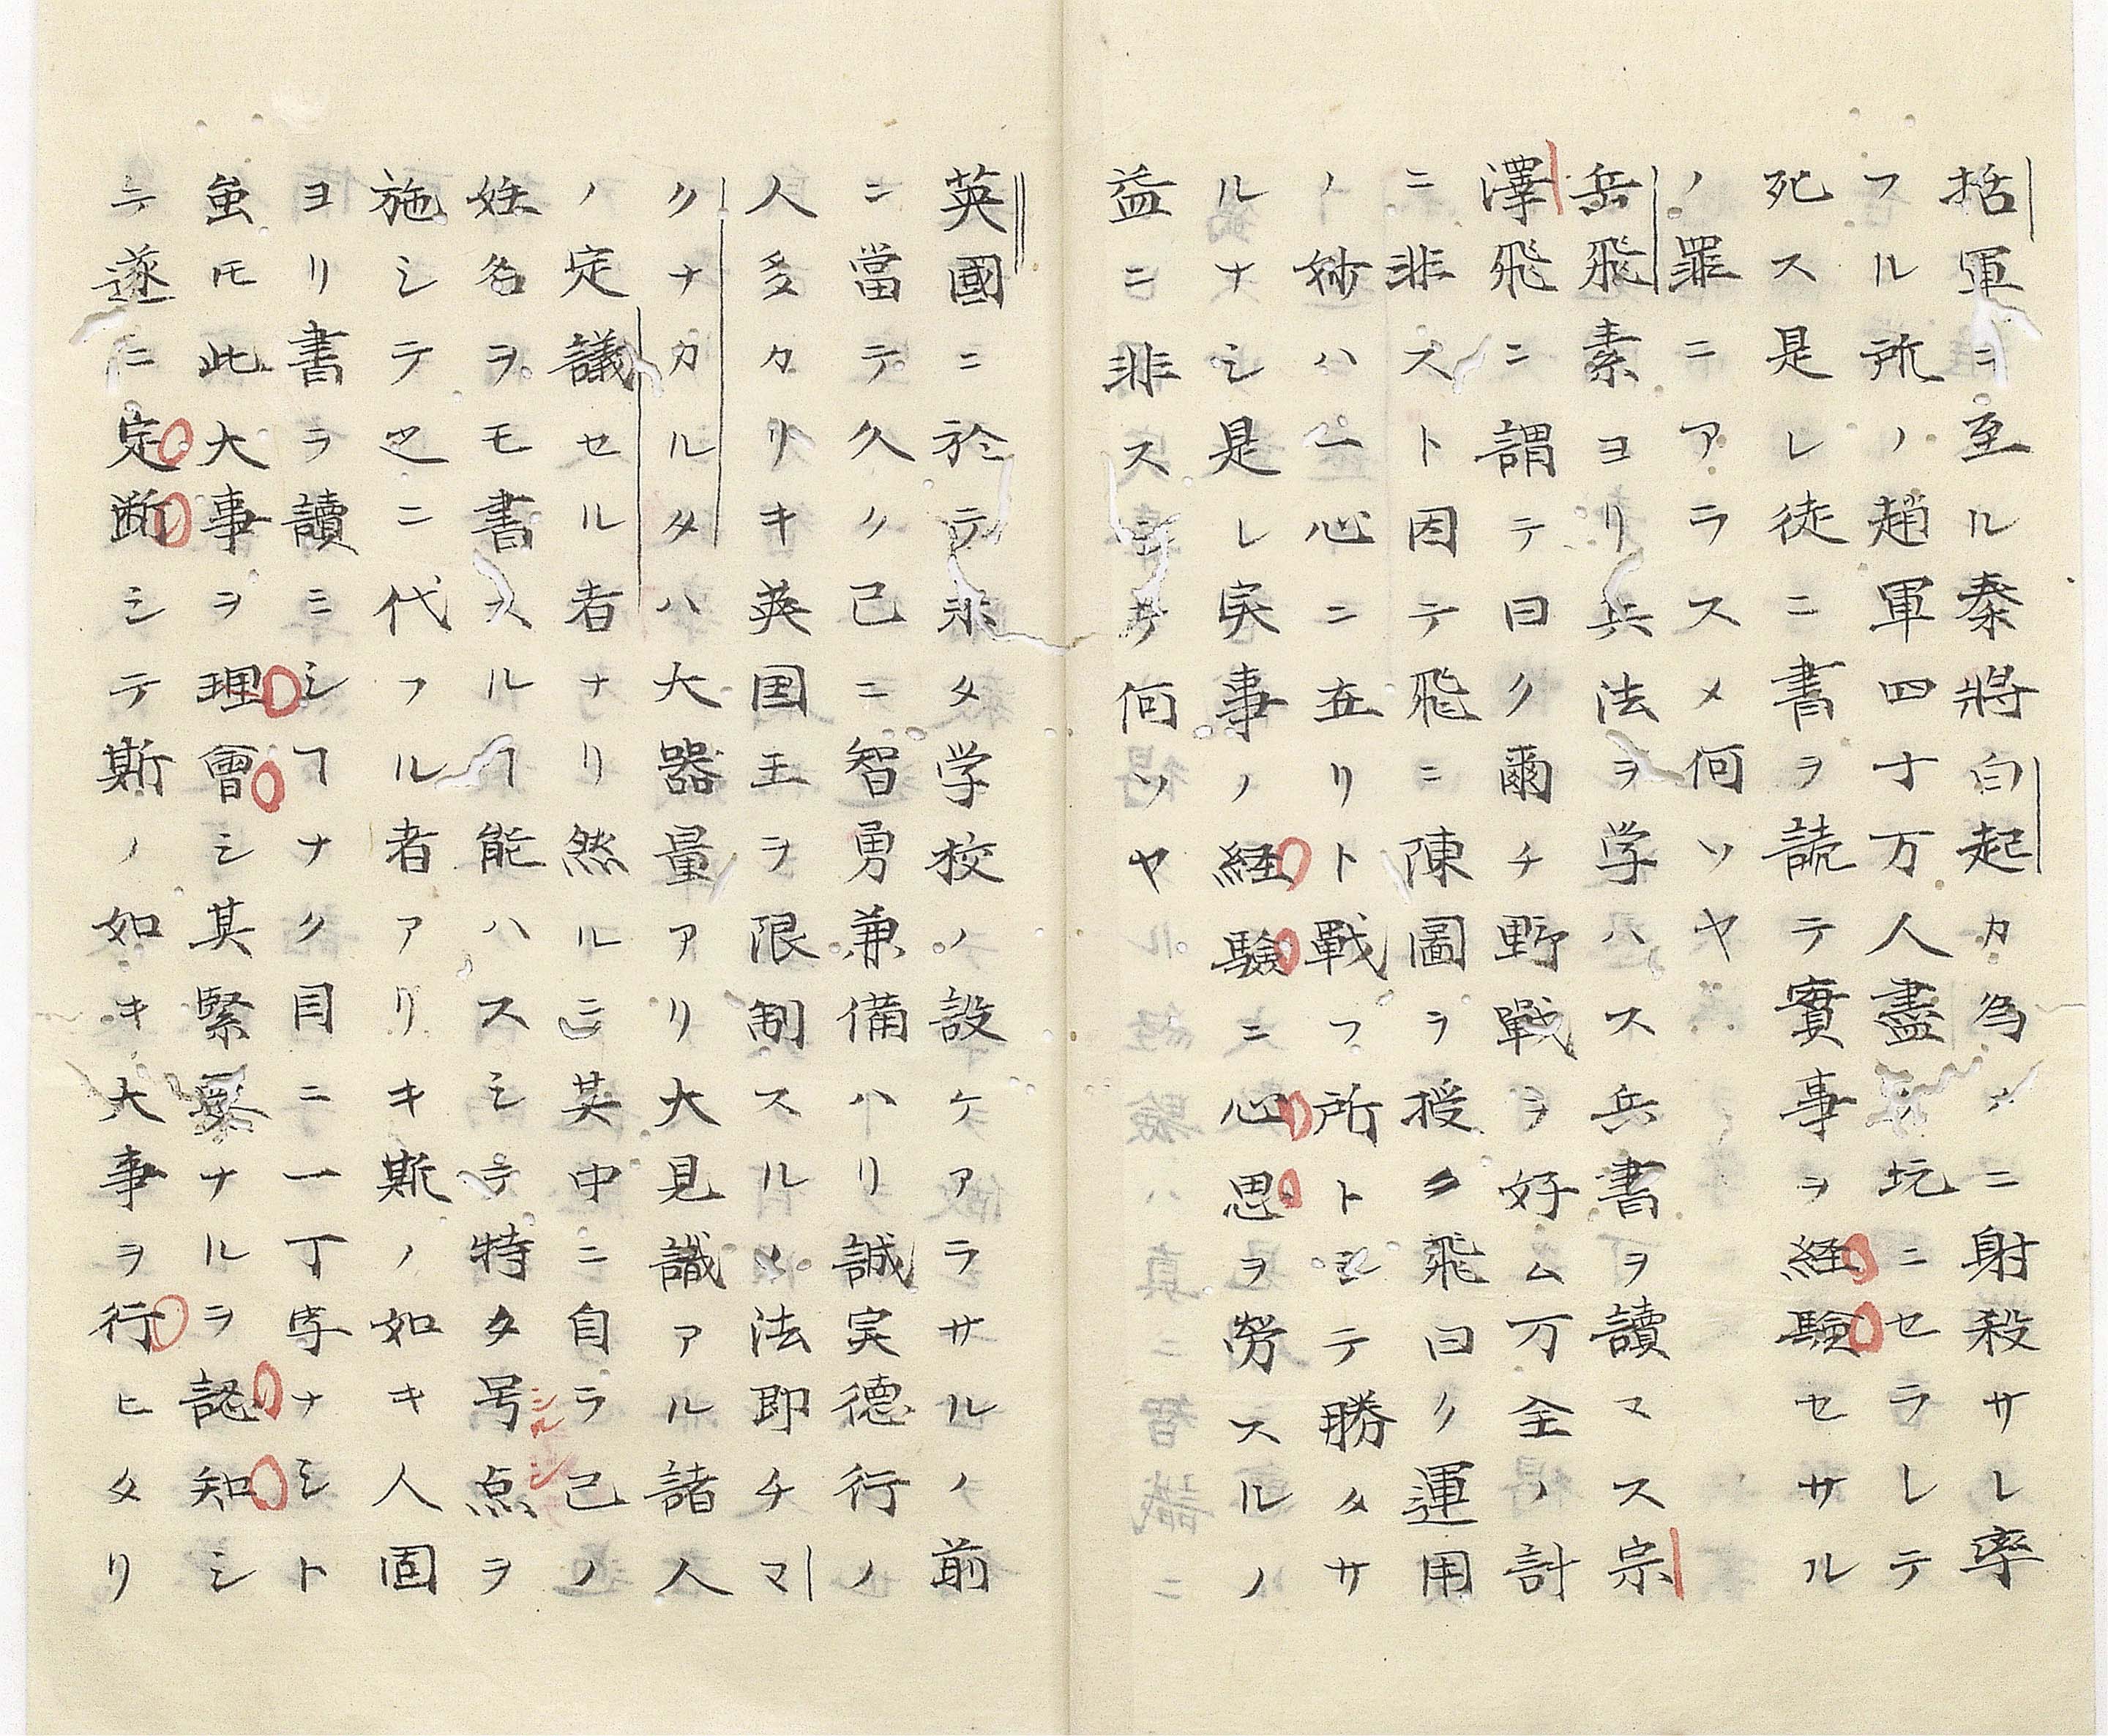 括軍ニ至ル秦將白起カ為メニ射殺サレ率
フル所ノ趙軍四十万人盡ク坑ニセラレテ
死ス是レ徒ニ書ヲ読テ實事ヲ経験セサル
ノ罪ニアラスメ何ソヤ
岳飛素ヨリ兵法ヲ学ハス兵書ヲ讀マス宗
澤飛ニ謂テ曰ク爾チ野戰ヲ好ム万全ノ計
ニ非スト因テ飛ニ陳圖ヲ授ク飛曰ク運用
ノ妙ハ一心ニ在リト戰フ所トシテ勝タサ
ルナシ是レ実事ノ経験ニ心思ヲ勞スルノ
益ニ非スシテ何ソヤ
英國ニ於テ未タ学校ノ設ケアラサルノ前
ニ當テ久ク已ニ智勇兼備ハリ誠実德行ノ
人多カリキ英国王ヲ限制スルノ法即チマ
クナカルタハ大器量アリ大見識アル諸人
ノ定議セル者ナリ然ルニ其中ニ自ラ己ノ
姓名ヲモ書スルヿ能ハスシテ特タ号点ヲ
シルシ
施シテ之ニ代フル者アリキ斯ノ如キ人固
ヨリ書ヲ讀ミシヿナク目ニ一丁字ナシト
虽モ此大事ヲ理會シ其緊要ナルヲ認知シ
テ遂ニ定断シテ斯ノ如キ大事ヲ行ヒタリ